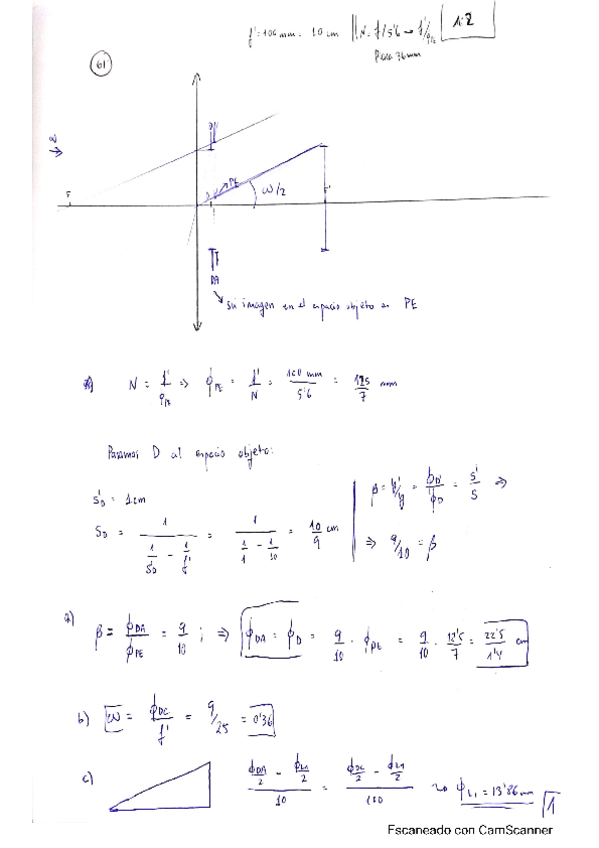 f' = 100 mm = 10 cm || N = f/5'6 → f'/φPE 1:2
Para 36mm
61
DA
PE ω/2
F'
DA
su imagen en el espacio objeto es PE
N = f'/φPE ⇒ φPE = f'/N = 100 mm/5'6 = 125/7 mm
Pasamos D al espacio objeto:
s'D = 1cm
SD = 1/(1/s'D - 1/f') = 1/(1/1 - 1/10) = 10/9 cm
β = y'/y = φD'/φD = s'/s ⇒
⇒ 9/10 = β
a) β = φDA/φPE = 9/10 ; ⇒ φDA = φD = 9/10 · φPE = 9/10 · 12'5/7 = 22'5/1'4 cm
b) ω = φDC/f' = 9/25 = 0'36
c) (φDA/2 - φL1/2)/10 = (φDC/2 - φL1/2)/100 φL1 = 13'86 mm
1
Escaneado con CamScanner